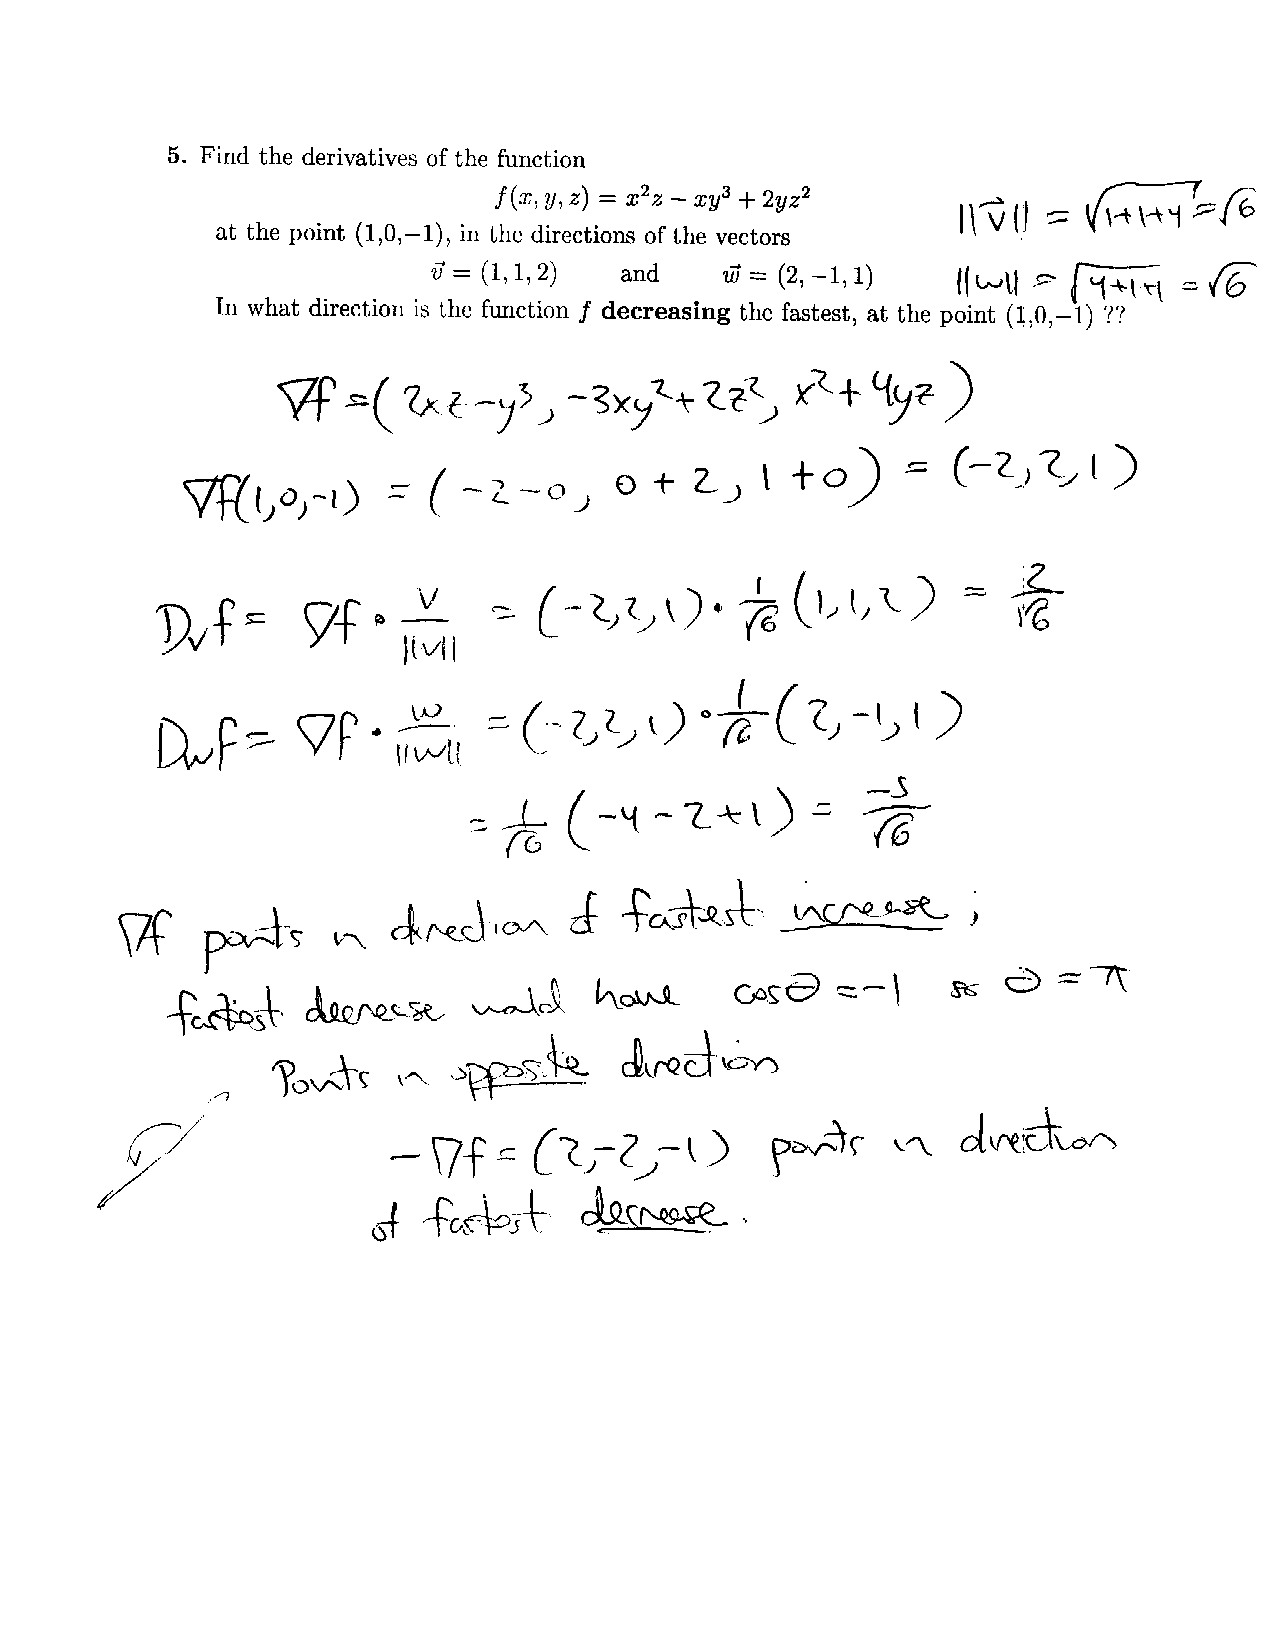 5. Find the derivatives of the function
f(x, y, z) = x²z − xy³ + 2yz²
||v⃗|| = √1+1+4 = √6
at the point (1,0,−1), in the directions of the vectors
v⃗ = (1, 1, 2) and w⃗ = (2, −1, 1)
||w|| = √4+1+1 = √6
In what direction is the function f decreasing the fastest, at the point (1,0,−1) ??
∇f = (2xz − y³, −3xy² + 2z², x² + 4yz)
∇f(1,0,−1) = (−2−0, 0+2, 1+0) = (−2,2,1)
Dvf = ∇f · v/||v|| = (−2,2,1) · 1/√6 (1,1,2) = 2/√6
Dwf = ∇f · w/||w|| = (−2,2,1) · 1/√6 (2,−1,1)
= 1/√6 (−4−2+1) = −5/√6
∇f points in direction of fastest increase ;
fastest decrease would have cosθ = −1 so θ = π
Points in opposite direction
−∇f = (2,−2,−1) points in direction
of fastest decrease.